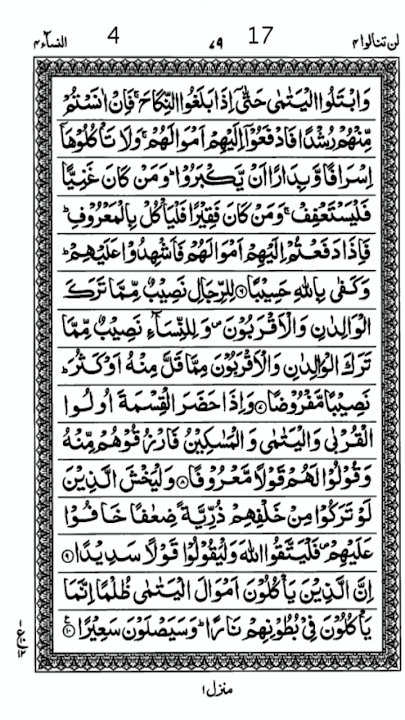 لن تنالوا ۴ 17 ۷۹ 4 النسآء ۴
وَابْتَلُوا الْيَتٰمٰى حَتّٰٓى اِذَا بَلَغُوا النِّكَاحَ ۚ فَاِنْ اٰنَسْتُمْ
مِّنْهُمْ رُشْدًا فَادْفَعُوْٓا اِلَيْهِمْ اَمْوَالَهُمْ ۚ وَلَا تَاْكُلُوْهَآ
اِسْرَافًا وَّبِدَارًا اَنْ يَّكْبَرُوْا ؕ وَمَنْ كَانَ غَنِيًّا
فَلْيَسْتَعْفِفْ ۚ وَمَنْ كَانَ فَقِيْرًا فَلْيَاْكُلْ بِالْمَعْرُوْفِ ؕ
فَاِذَا دَفَعْتُمْ اِلَيْهِمْ اَمْوَالَهُمْ فَاَشْهِدُوْا عَلَيْهِمْ ؕ
وَكَفٰى بِاللّٰهِ حَسِيْبًا ۶ لِلرِّجَالِ نَصِيْبٌ مِّمَّا تَرَكَ
الْوَالِدٰنِ وَالْاَقْرَبُوْنَ ۪ وَلِلنِّسَآءِ نَصِيْبٌ مِّمَّا
تَرَكَ الْوَالِدٰنِ وَالْاَقْرَبُوْنَ مِمَّا قَلَّ مِنْهُ اَوْ كَثُرَ ؕ
نَصِيْبًا مَّفْرُوْضًا ۷ وَاِذَا حَضَرَ الْقِسْمَةَ اُولُوا
الْقُرْبٰى وَالْيَتٰمٰى وَالْمَسٰكِيْنُ فَارْزُقُوْهُمْ مِّنْهُ
وَقُوْلُوْا لَهُمْ قَوْلًا مَّعْرُوْفًا ۸ وَلْيَخْشَ الَّذِيْنَ
لَوْ تَرَكُوْا مِنْ خَلْفِهِمْ ذُرِّيَّةً ضِعٰفًا خَافُوْا
عَلَيْهِمْ ۪ فَلْيَتَّقُوا اللّٰهَ وَلْيَقُوْلُوْا قَوْلًا سَدِيْدًا ۹
اِنَّ الَّذِيْنَ يَاْكُلُوْنَ اَمْوَالَ الْيَتٰمٰى ظُلْمًا اِنَّمَا
يَاْكُلُوْنَ فِيْ بُطُوْنِهِمْ نَارًا ؕ وَسَيَصْلَوْنَ سَعِيْرًا ۱۰
ع ۱۲
منزل ۱